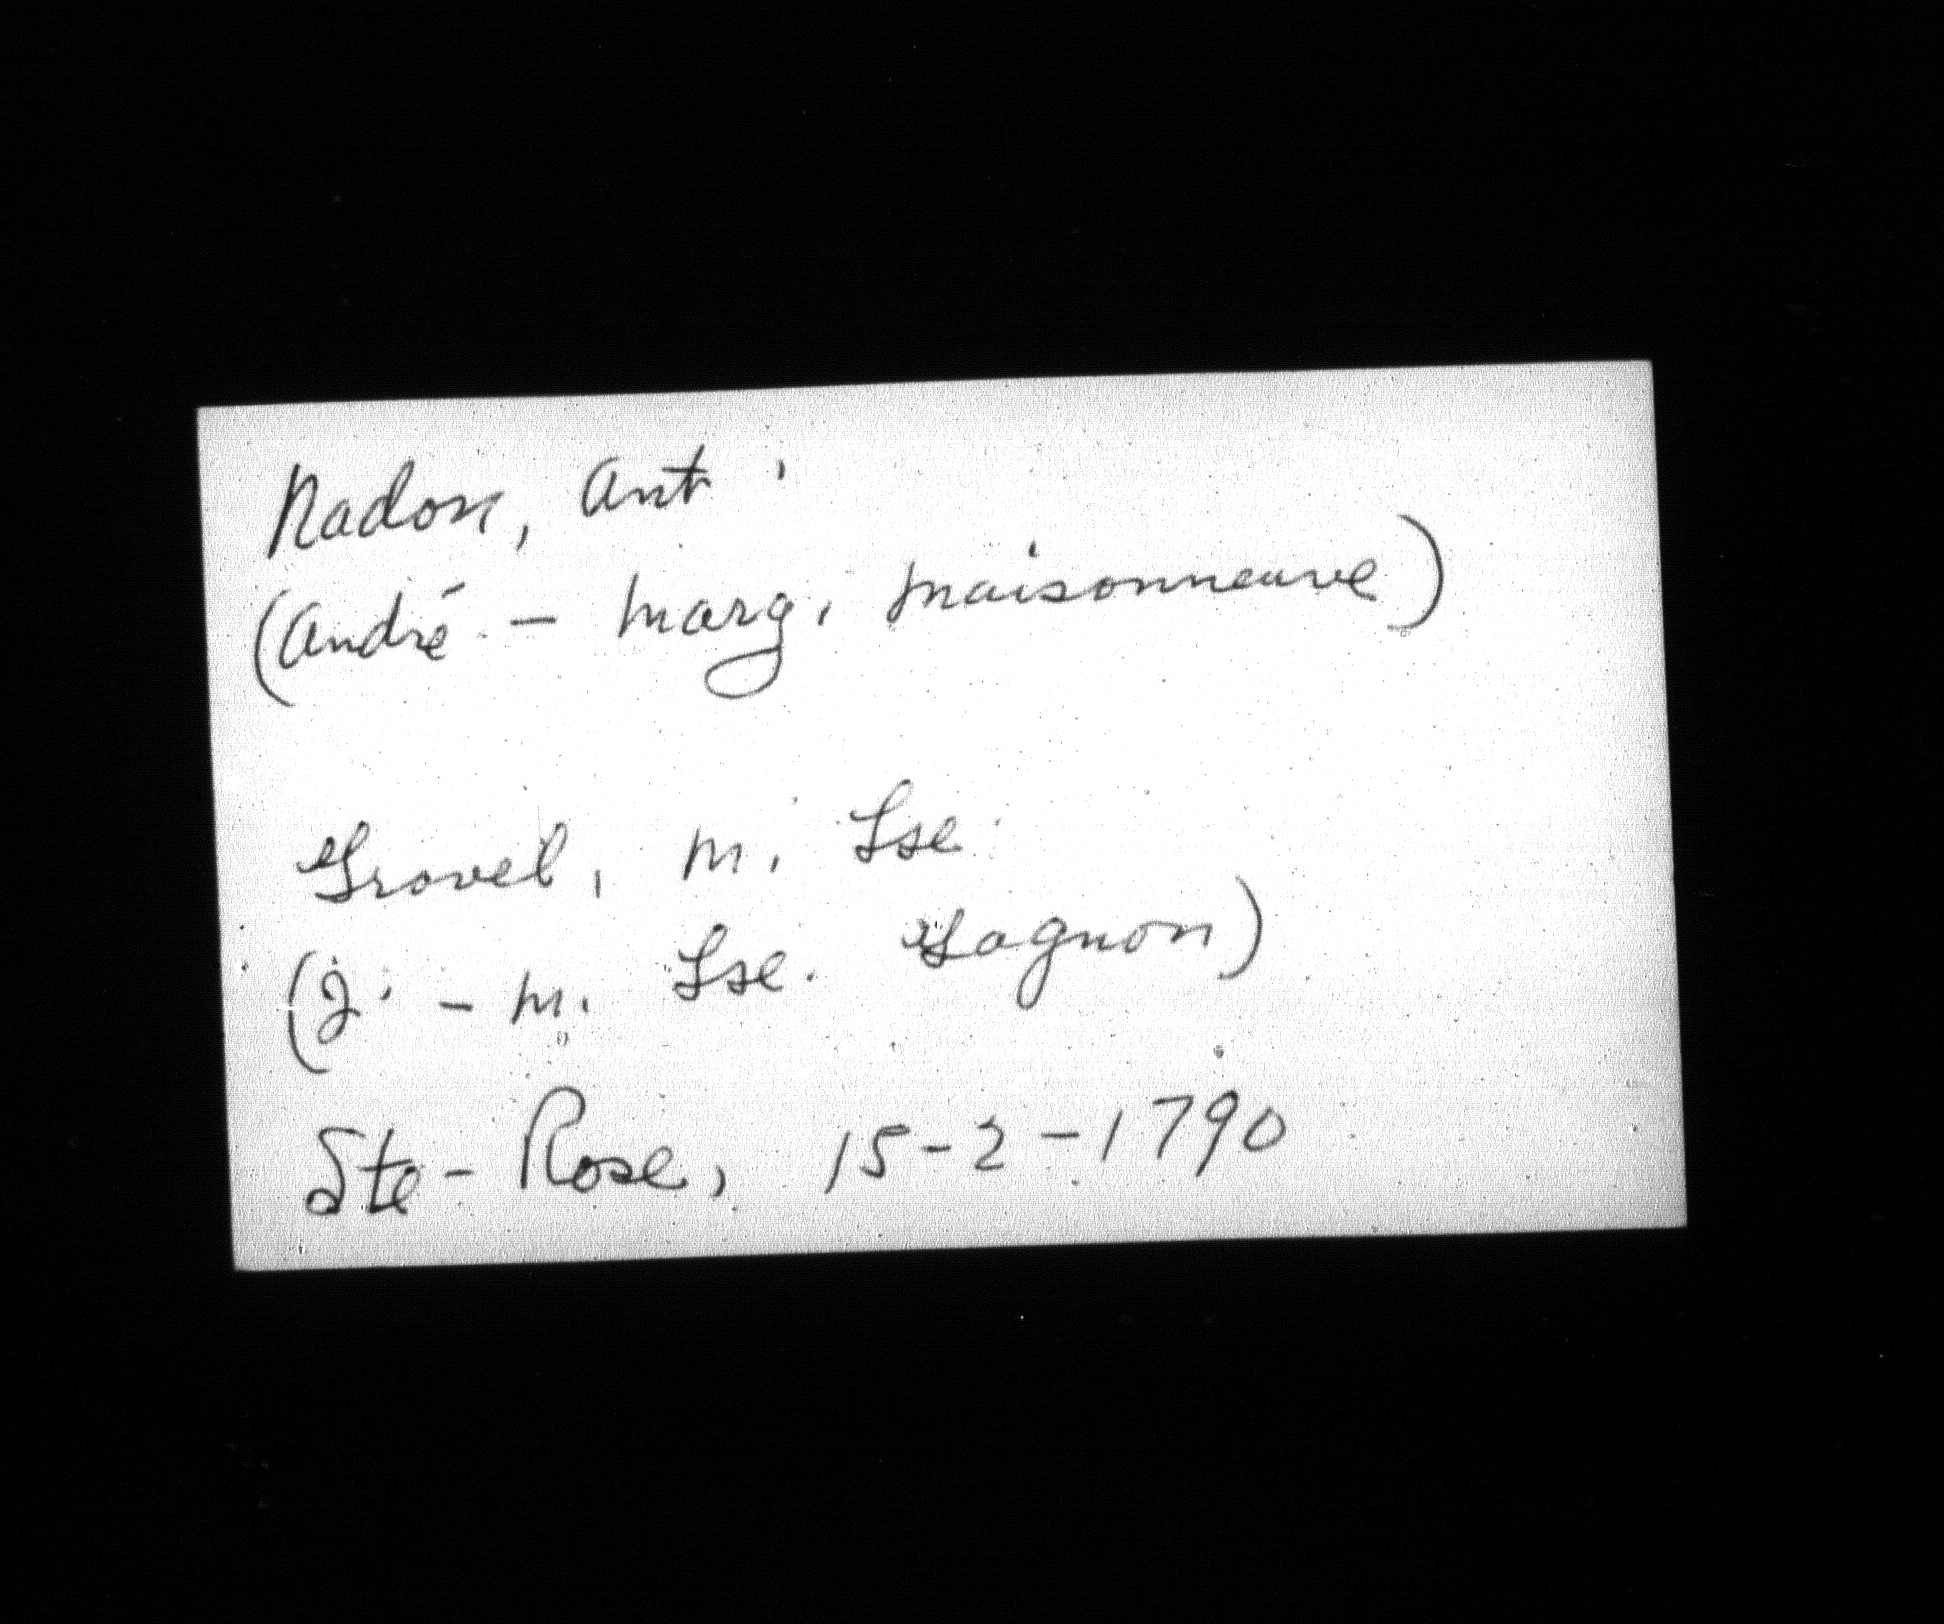 Nadon, Ant.
(André - Marg. Maisonneuve)
Gravel, M. Lse
(J. - M. Lse. Gagnon)
Ste-Rose, 15-2-1790